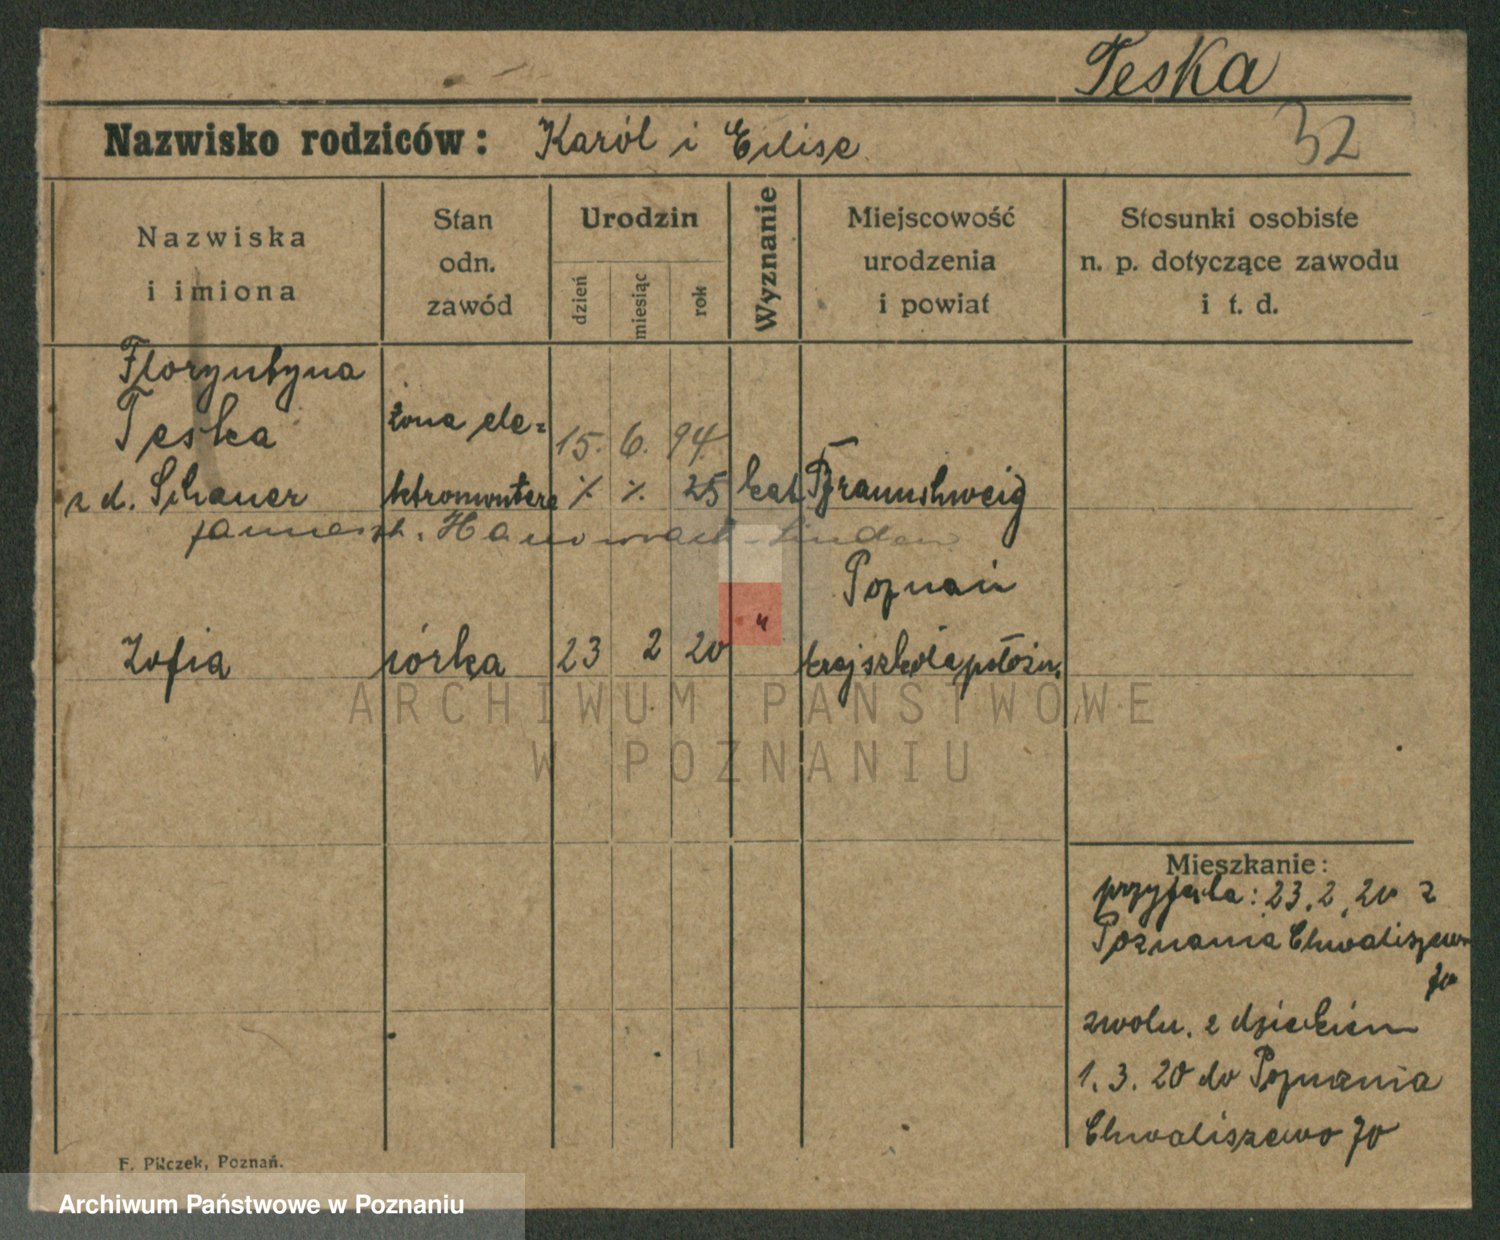 Teska
32
Nazwisko rodziców: Karól i Elise
Nazwiska i imiona
Stan odn. zawód
Urodzin
dzień
miesiąc
rok
Wyznanie
Miejscowość urodzenia i powiat
Stosunki osobiste n. p. dotyczące zawodu i t. d.
Floryntyna
Teska
żona ele-
15. 6. 94
z d. Schauer ktromontera % % 25 kat Braunshweig
Hannover - Linden
Poznań
Zofia córka 23 2 20 " kraj szkoła położn.
ARCHIWUM PAŃSTWOWE
W POZNANIU
Mieszkanie:
przyjęta: 23. 2. 20 z
Poznania Chwaliszewo
70
zwoln. z dzieckiem
1. 3. 20 do Poznania
Chwaliszewo 70
F. Pilczek, Poznań.
Archiwum Państwowe w Poznaniu